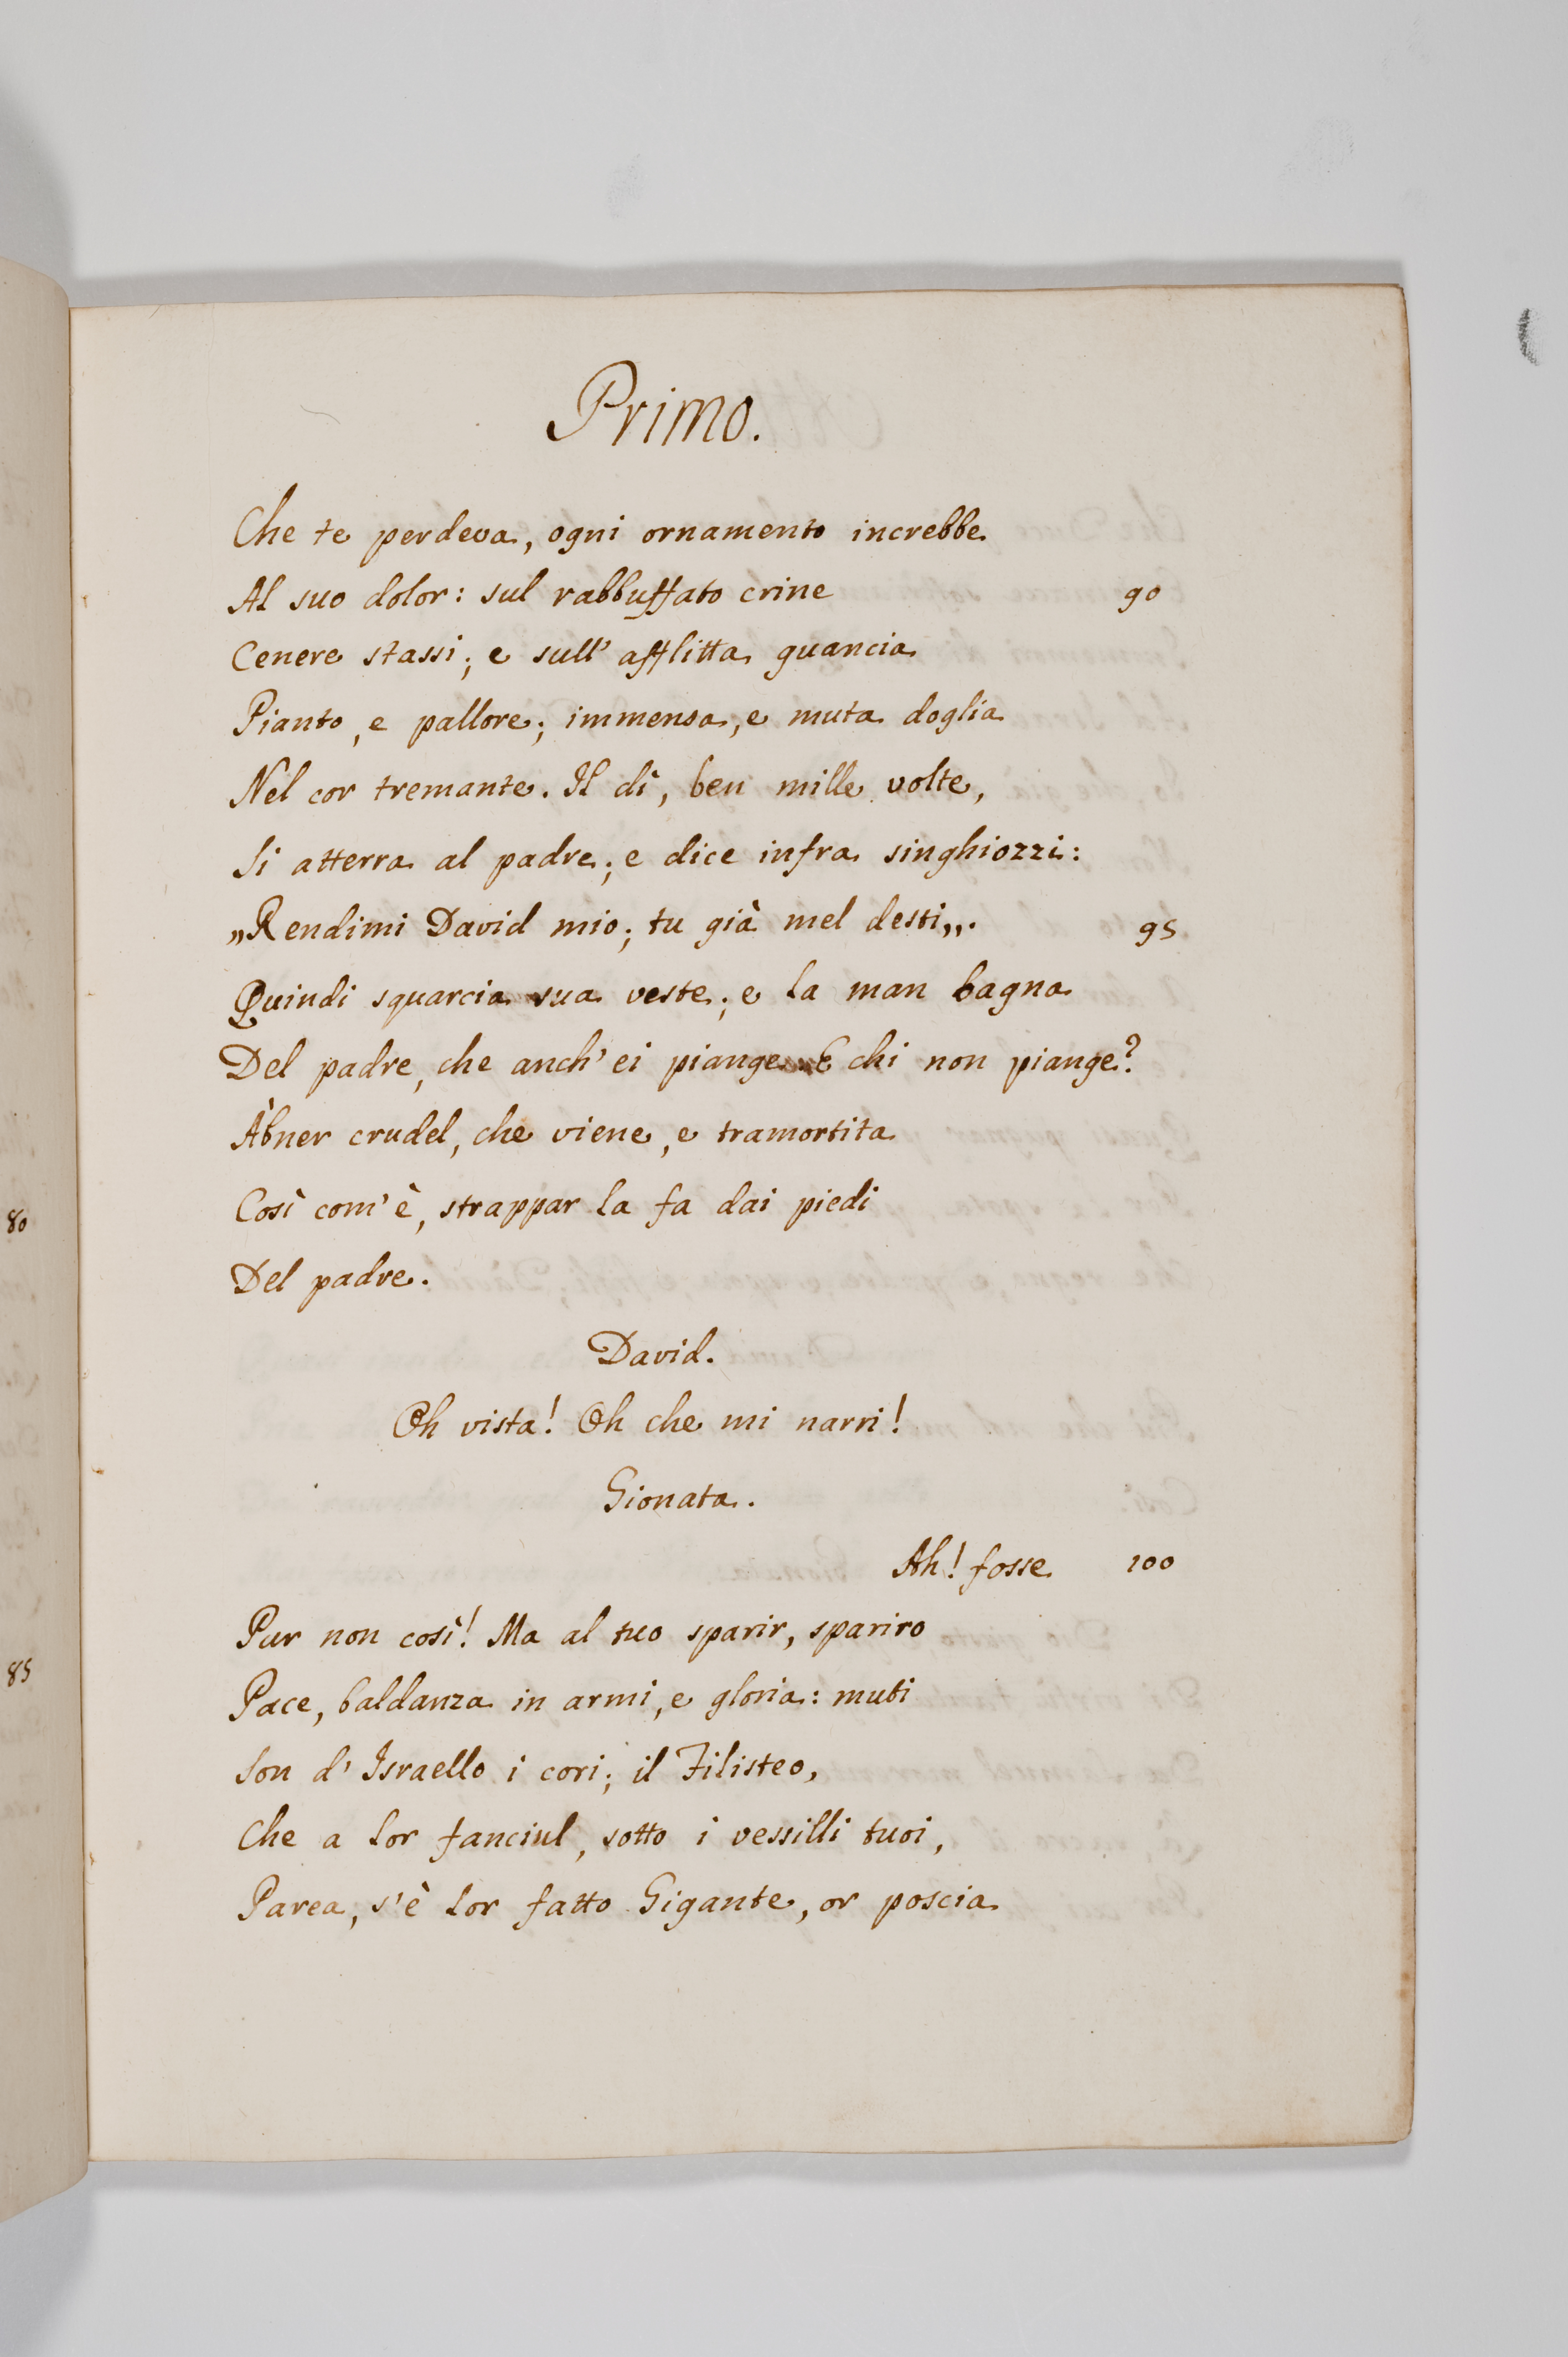 Primo.
Che te perdeva, ogni ornamento increbbe
Al suo dolor: sul rabbuffato crine 90
Cenere stassi; e sull' afflitta guancia
Pianto, e pallore; immensa, e muta doglia
Nel cor tremante. Il dì, ben mille volte,
Si atterra al padre; e dice infra singhiozzi:
„Rendimi David mio; tu già mel desti„. 95
Quindi squarcia sua veste; e la man bagna
Del padre, che anch' ei piange. E chi non piange?
Àbner crudel, che viene, e tramortita
Così com' è, strappar la fa dai piedi
Del padre.
David.
Oh vista! Oh che mi narri!
Gionata.
Ah! fosse 100
Pur non così! Ma al tuo sparir, spariro
Pace, baldanza in armi, e gloria: muti
Son d' Israello i cori; il Filisteo,
Che a lor fanciul, sotto i vessilli tuoi,
Parea, s' è lor fatto Gigante, or poscia
80
85